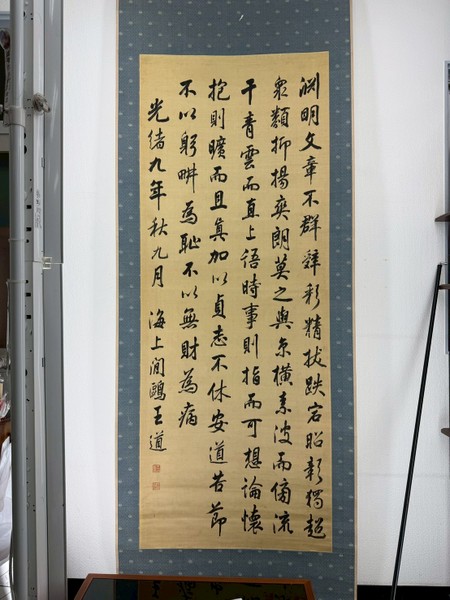 渊明文章不群辤彩精拔跌宕昭彰獨超
衆類抑揚爽朗莫之與京橫素波而傍流
干青雲而直上語時事則指而可想論懷
抱則曠而且真加以貞志不休安道苦節
不以躬畊為耻不以無財為病
光緒九年秋九月 海上閒鷗王道